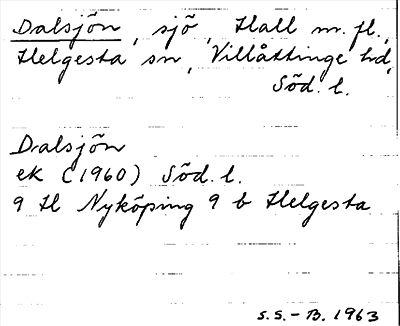 Dalsjön, sjö, Hall m. fl.,
Helgesta sn, Villåttinge hd,
Söd. l.
Dalsjön
ek (1960) Söd. l.
9 H Nyköping 9 b Helgesta
S.S.-B. 1963